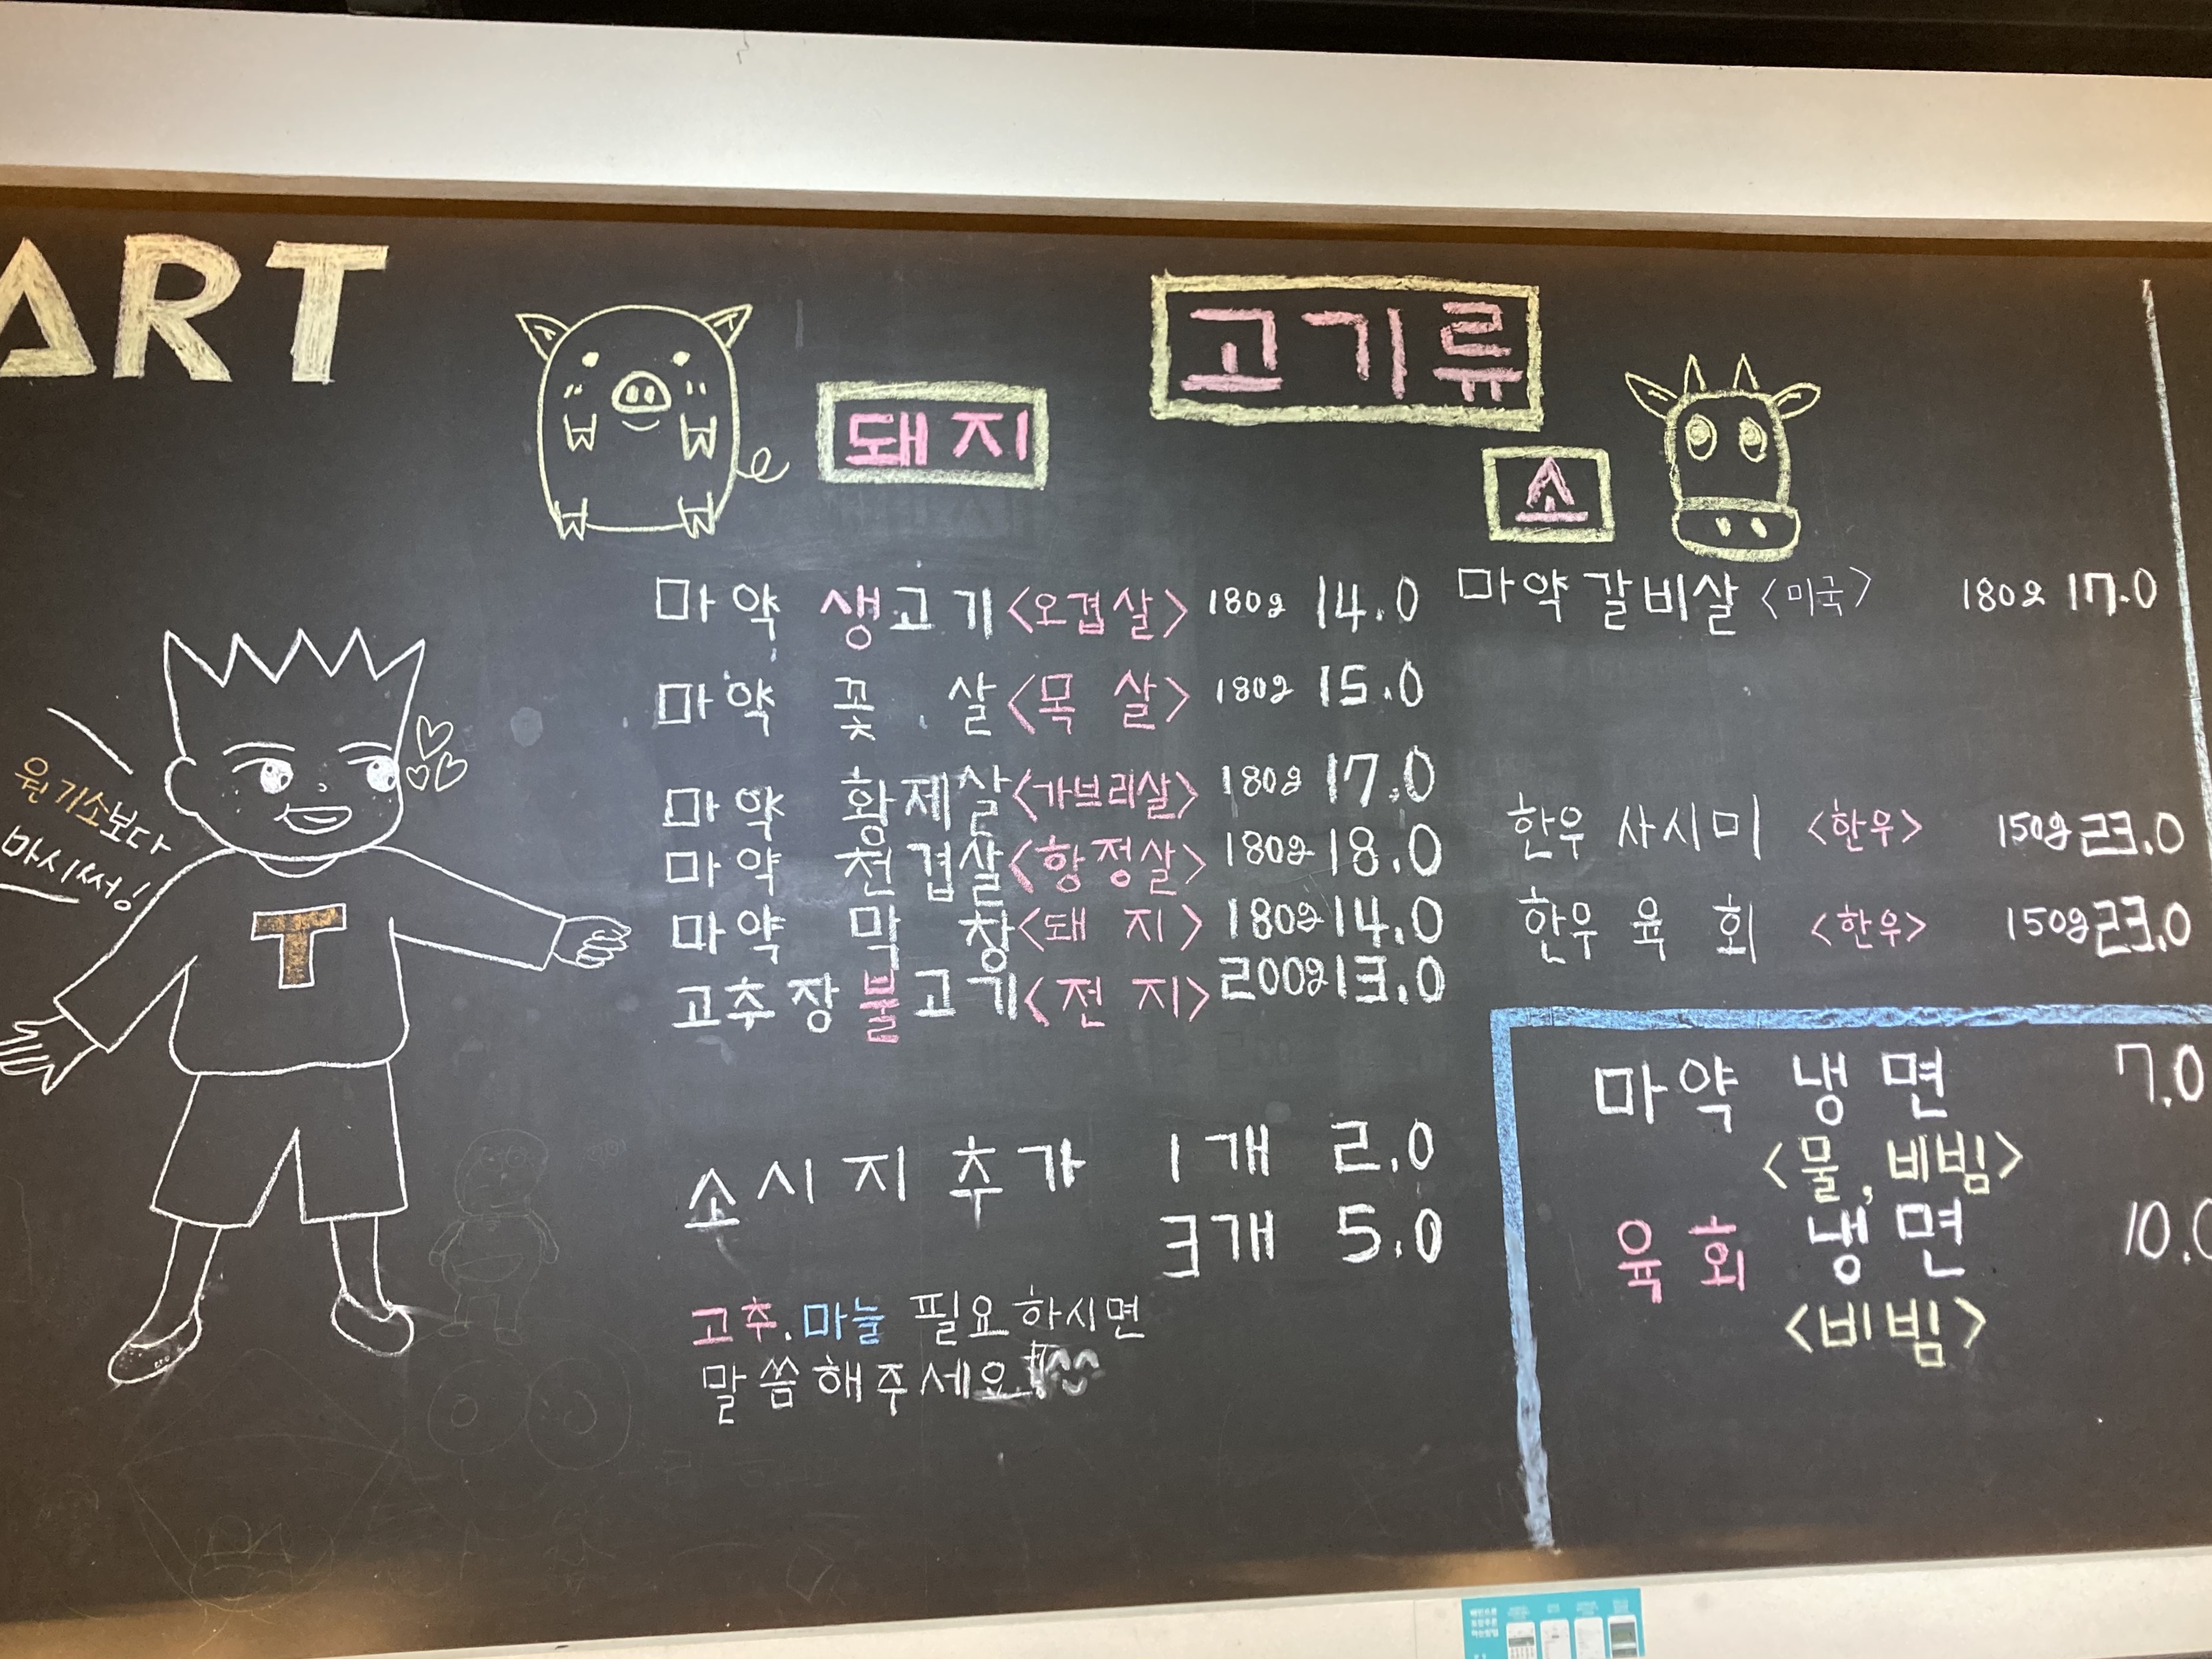 ART
고기류
돼지
마약 생고기<오겹살> 180g 14.0
마약 꽃 살<목 살> 180g 15.0
마약 황제살<가브리살> 180g 17.0
마약 천겹살<항정살> 180g 18.0
마약 막 창<돼 지> 180g 14.0
고추장 불고기<전 지> 200g 13.0
소시지 추가 1개 2.0
3개 5.0
고추.마늘 필요하시면
말씀해주세요!
소
마약갈비살 <미국> 180g 17.0
한우 사시미 <한우> 150g 23.0
한우 육 회 <한우> 150g 23.0
마약 냉면 7.0
<물, 비빔>
육회 냉면 10.0
<비빔>
원기소보다
마시써!
T